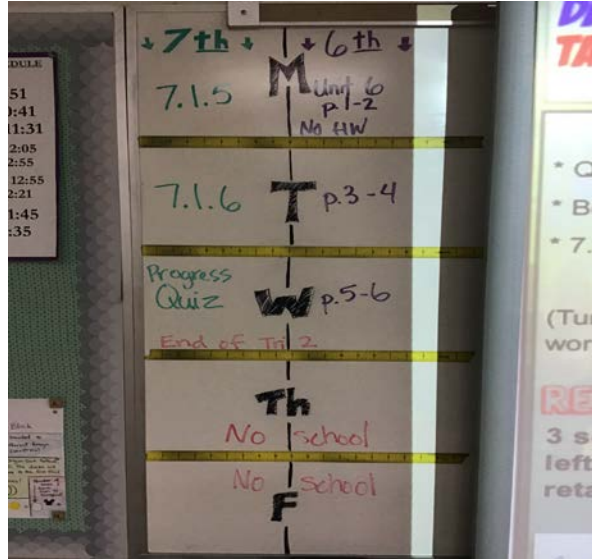 EDULE
51
:41
11:31
12:05
2:55
12:55
2:21
1:45
:35
↓ 7th ↓ ↓ 6th ↓
7.1.5 M Unit 6
p.1-2
No HW
7.1.6 T p.3-4
Progress
Quiz W p.5-6
End of Tri 2
Th
No school
No school
F
TA
* Q
* B
* 7.
(Tu
wor
RE
3 s
left
reta